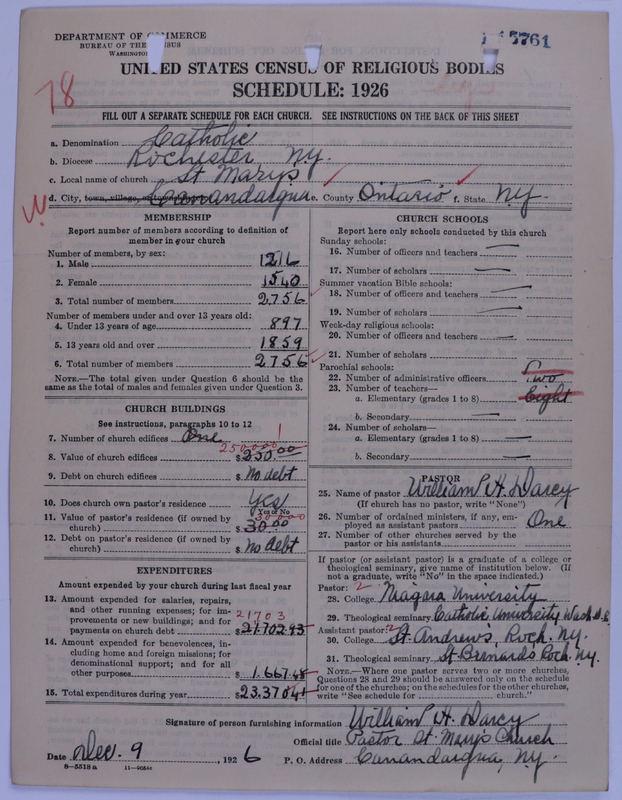 DEPARTMENT OF COMMERCE
BUREAU OF THE CENSUS
WASHINGTON
5761
UNITED STATES CENSUS OF RELIGIOUS BODIES
SCHEDULE: 1926
78
FILL OUT A SEPARATE SCHEDULE FOR EACH CHURCH. SEE INSTRUCTIONS ON THE BACK OF THIS SHEET
a. Denomination Catholic
b. Diocese Rochester N.Y.
c. Local name of church St Marys
d. City, town, village, Canandaigua e. County Ontario f. State N.Y.
MEMBERSHIP
Report number of members according to definition of member in your church
Number of members, by sex:
1. Male 1216
2. Female 1540
3. Total number of members 2756
Number of members under and over 13 years old:
4. Under 13 years of age 897
5. 13 years old and over 1859
6. Total number of members 2756
NOTE.—The total given under Question 6 should be the same as the total of males and females given under Question 3.
CHURCH BUILDINGS
See instructions, paragraphs 10 to 12
7. Number of church edifices One 1
250000
8. Value of church edifices $250.00
9. Debt on church edifices $ No debt
10. Does church own pastor's residence Yes
Yes or No
30000
11. Value of pastor's residence (if owned by church) $30.00
12. Debt on pastor's residence (if owned by church) $ No debt
EXPENDITURES
Amount expended by your church during last fiscal year
13. Amount expended for salaries, repairs, and other running expenses; for improvements or new buildings; and for payments on church debt $21.702.93
21703
14. Amount expended for benevolences, including home and foreign missions; for denominational support; and for all other purposes $1.667.48
15. Total expenditures during year $23.370.41
CHURCH SCHOOLS
Report here only schools conducted by this church
Sunday schools:
16. Number of officers and teachers —
17. Number of scholars —
Summer vacation Bible schools:
18. Number of officers and teachers —
19. Number of scholars —
Week-day religious schools:
20. Number of officers and teachers —
21. Number of scholars
Parochial schools:
22. Number of administrative officers Two
23. Number of teachers—
a. Elementary (grades 1 to 8) Eight
b. Secondary —
24. Number of scholars—
a. Elementary (grades 1 to 8) —
b. Secondary —
PASTOR
25. Name of pastor William P. H. Darcy
(If church has no pastor, write "None")
26. Number of ordained ministers, if any, employed as assistant pastors One
27. Number of other churches served by the pastor or his assistants
If pastor (or assistant pastor) is a graduate of a college or theological seminary, give name of institution below. (If not a graduate, write "No" in the space indicated.)
Pastor: 2
28. College Niagara University
29. Theological seminary Catholic University Wash D.C.
Assistant pastor: 2
30. College St. Andrews, Roch. N.Y.
31. Theological seminary St Bernards Roch. N.Y.
NOTE.—Where one pastor serves two or more churches, Questions 28 and 29 should be answered only on the schedule for one of the churches; on the schedules for the other churches, write "See schedule for church."
Signature of person furnishing information William H. Darcy
Official title Pastor St. Mary's Church
Date Dec. 9, 1926 P. O. Address Canandaigua, N.Y.
8—5518a